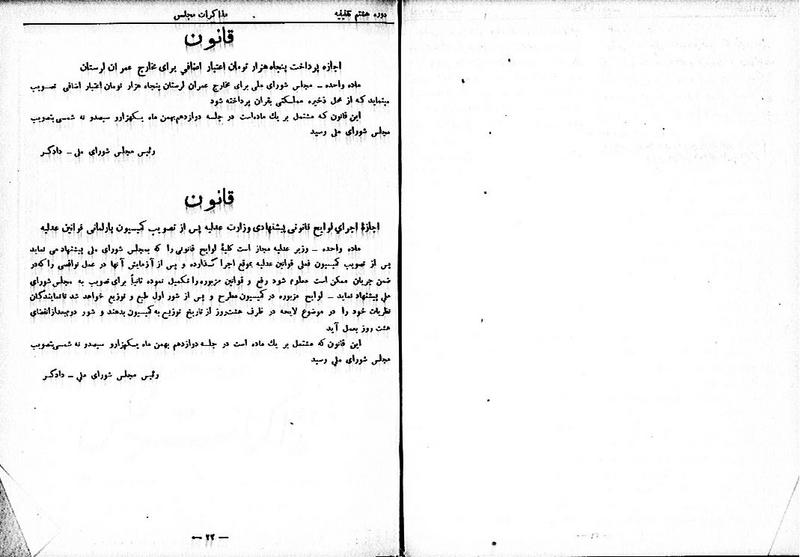 دوره هشتم تقنینیه
مذاکرات مجلس
قانون
اجازه پرداخت پنجاه هزار تومان اعتبار اضافی برای مخارج عمران لرستان
ماده واحده – مجلس شورای ملی برای مخارج عمران لرستان پنجاه هزار تومان اعتبار اضافی تصویب
مینماید که از محل ذخیره مملکتی بقران پرداخته شود
این قانون که مشتمل بر یك ماده است در جلسه دوازدهم بهمن ماه یکهزارو سیصدو نه شمسی بتصویب
مجلس شورای ملی رسید
رئیس مجلس شورای ملی – دادگر
قانون
اجازۀ اجرای لوایح قانونی پیشنهادی وزارت عدلیه پس از تصویب کمیسیون پارلمانی قوانین عدلیه
ماده واحده – وزیر عدلیه مجاز است کلیۀ لوایح قانونی را که بمجلس شورای ملی پیشنهاد می نماید
پس از تصویب کمیسیون فعلی قوانین عدلیه بموقع اجرا گذارده و پس از آزمایش آنها در عمل نواقصی را که در
ضمن جریان ممکن است معلوم شود رفع و قوانین مزبوره را تکمیل نموده ثانیاً برای تصویب به مجلس شورای
ملی پیشنهاد نماید – لوایح مزبوره در کمیسیون مطرح و پس از شور اول طبع و توزیع خواهد شد تا نمایندگان
نظریات خود را در موضوع لایحه در ظرف هشت روز از تاریخ توزیع به کمیسیون بدهند و شور دوم بعد از انقضای
هشت روز بعمل آید
این قانون که مشتمل بر یك ماده است در جلسه دوازدهم بهمن ماه یکهزارو سیصدو نه شمسی بتصویب
مجلس شورای ملی رسید
رئیس مجلس شورای ملی – دادگر
– ٢٢ –